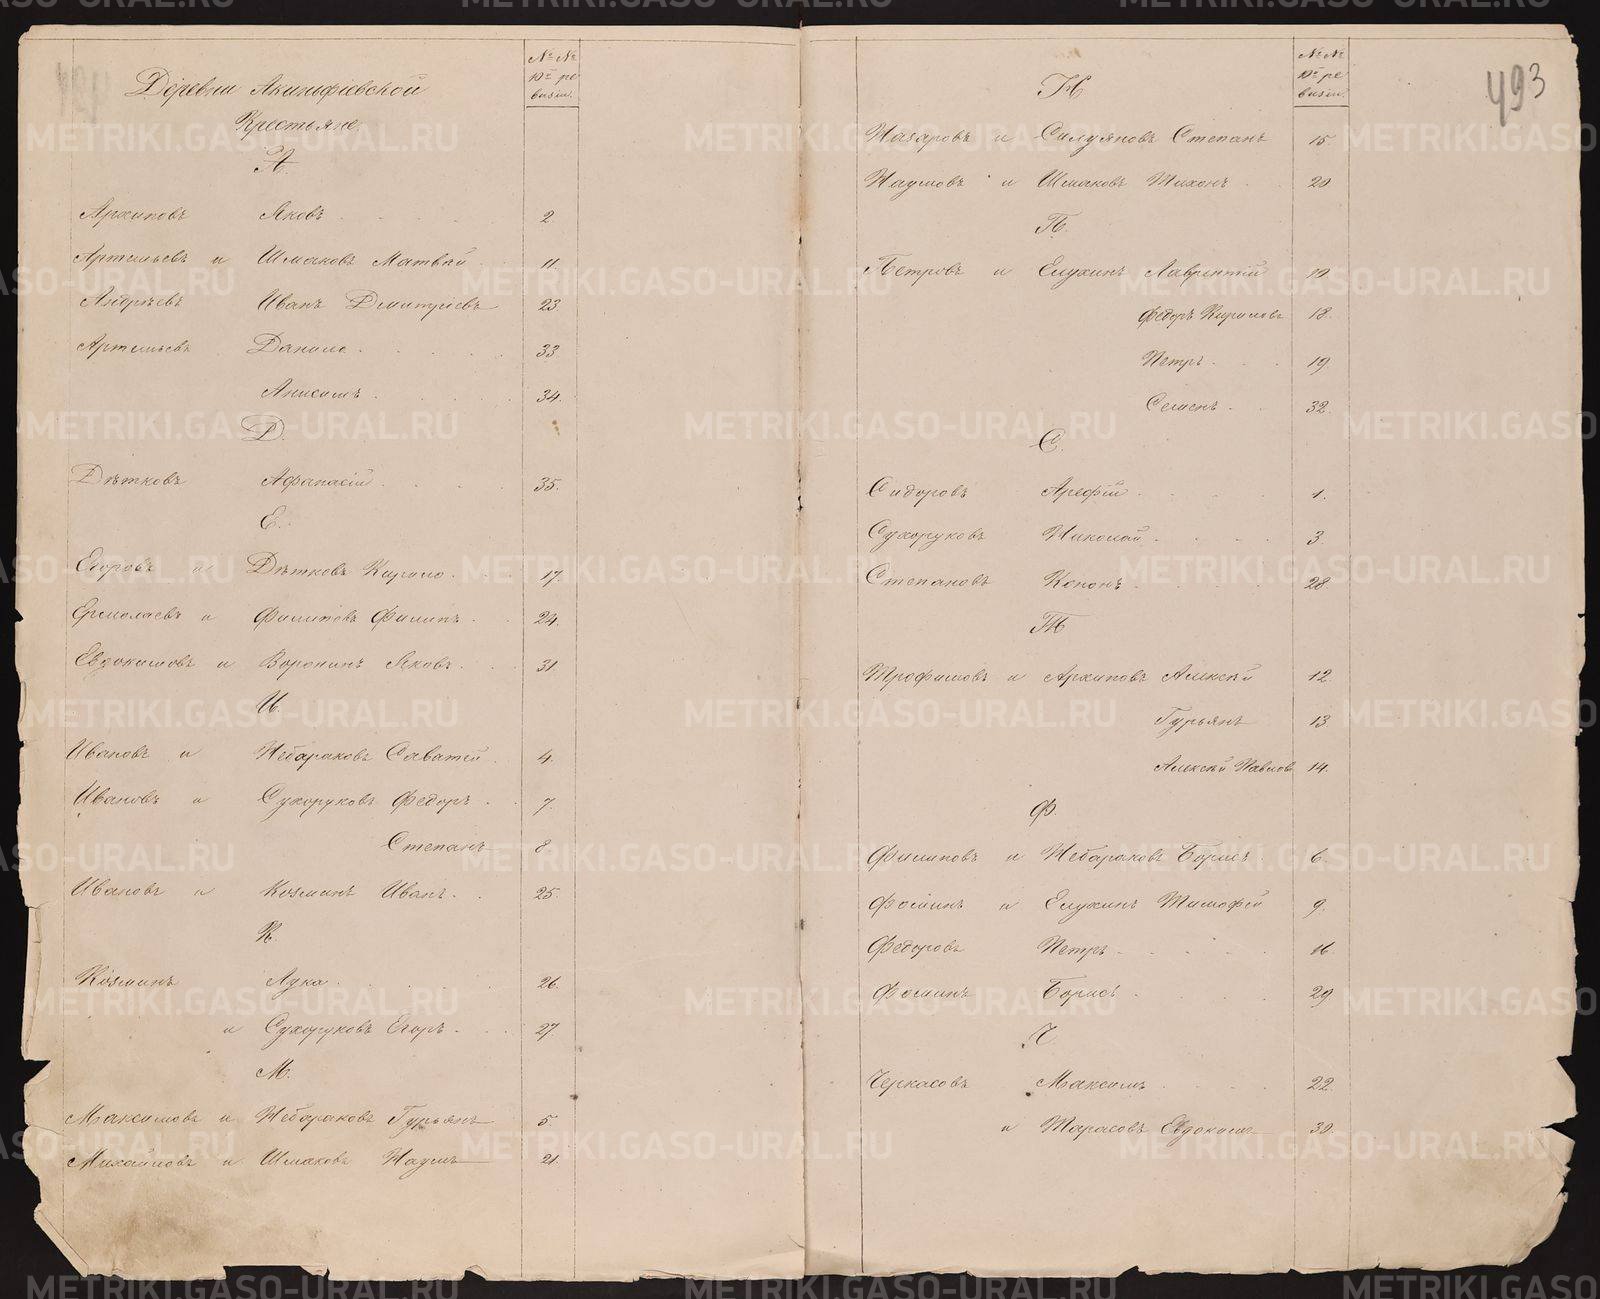 № №
10й ре
визіи.
Деревни Акинфіевской
Крестьяне.
А.
Архиповъ Яковъ 2.
Артемьевъ и Шмаковъ Матвѣй 11.
Андреевъ Иванъ Дмитріевъ 23.
Артемьевъ Данило 33.
Анисимъ 34.
Д.
Дѣтковъ Афанасій 35.
Е.
Егоровъ и Дѣтковъ Кирило 17.
Ермолаевъ и Филиповъ Филипъ 24.
Евдокимовъ и Воронинъ Яковъ 31.
И.
Ивановъ и Небараковъ Саватей 4.
Ивановъ и Сухоруковъ Федоръ 7.
Степанъ 8.
Ивановъ и Козминъ Иванъ 25.
К.
Козминъ Лука 26.
и Сухоруковъ Егоръ 27.
М.
Максимовъ и Небараковъ Гурьянъ 5.
Михайловъ и Шмаковъ Наумъ 21.
493
№ №
10й ре
визіи.
Н
Назаровъ и Силуяновъ Степанъ 15.
Наумовъ и Шмаковъ Тихонъ 20
П.
Петровъ и Елухинъ Лаврентій 10
Федоръ Кириловъ 18.
Петръ 19.
Семенъ 32.
С.
Сидоровъ Арефій 1.
Сухоруковъ Николай 3.
Степановъ Кононъ 28.
Т
Трофимовъ и Архиповъ Алексѣй 12.
Гурьянъ 13.
Алексѣй Павловъ 14.
Ф.
Филиповъ и Небараковъ Борисъ 6.
Фоминъ и Елухинъ Тимофей 9.
Федоровъ Петръ 16.
Фоминъ Борисъ 29
Ч.
Черкасовъ Максимъ 22.
и Тарасовъ Евдокимъ 30.
METRIKI.GASO-URAL.RU